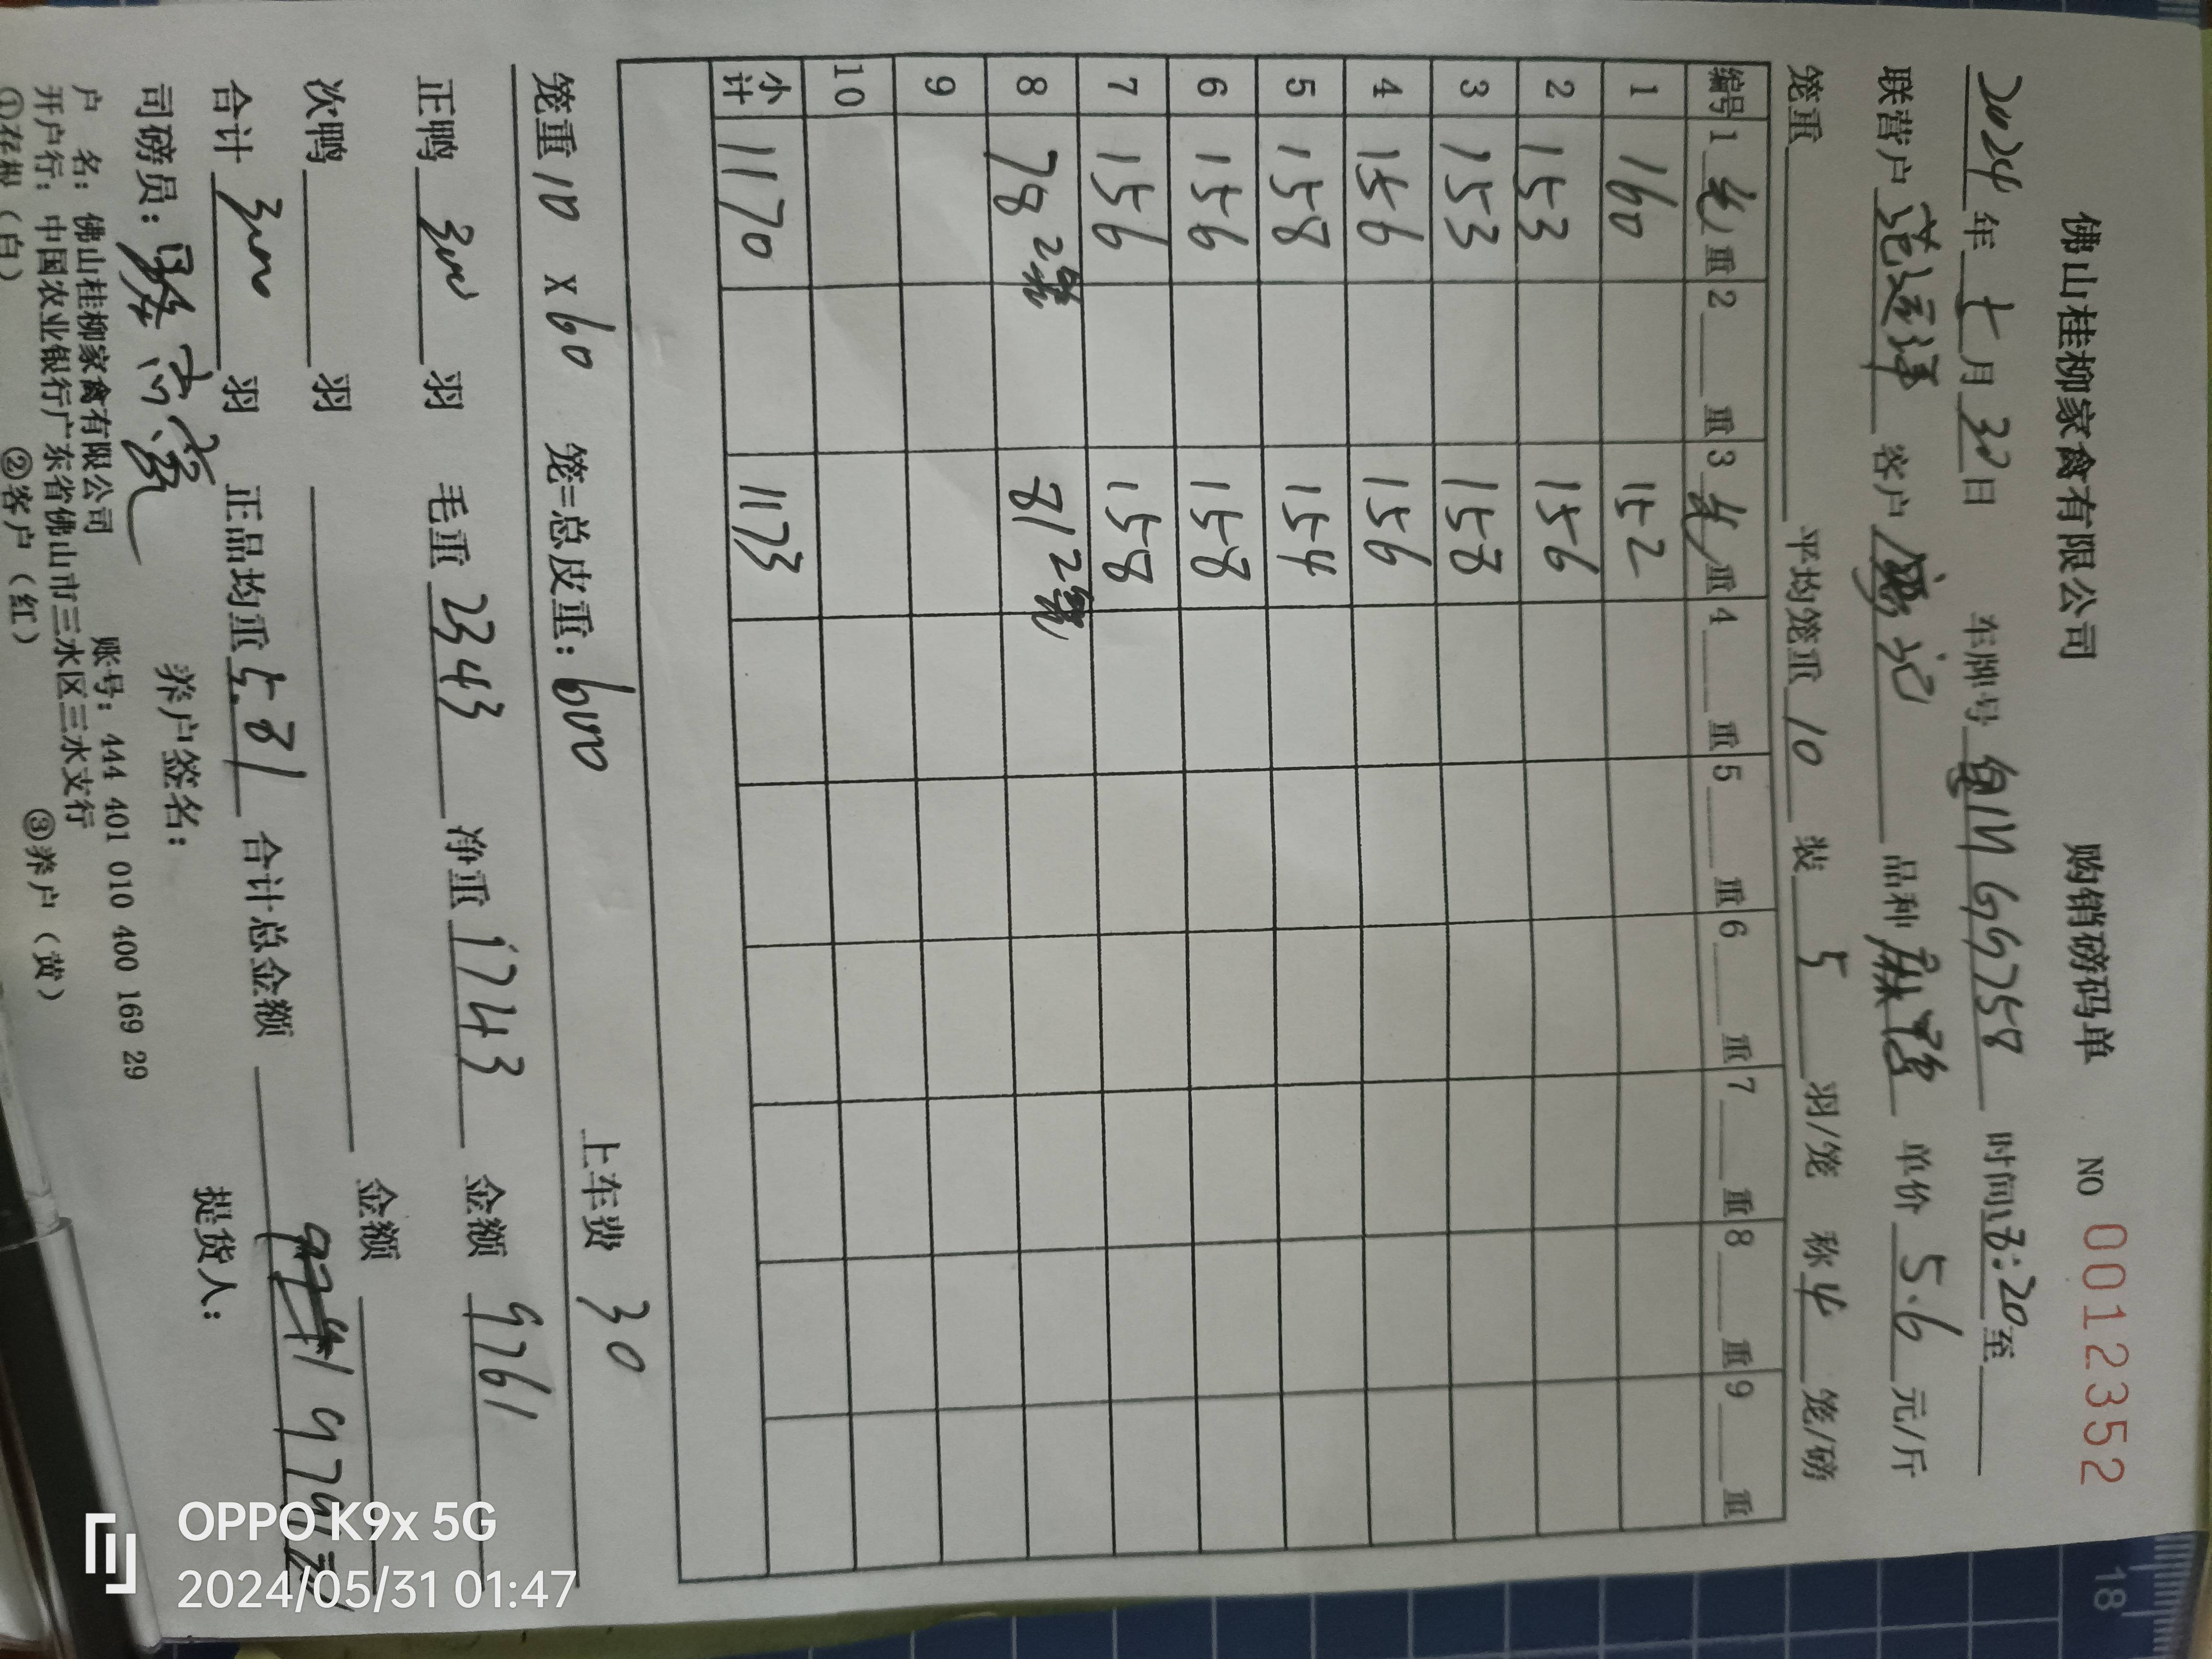 佛山桂柳家禽有限公司 购销磅码单 NO 0012352
2024年 七月 30日 车牌号 GG758 时间 8:20至
联营户 范运祥 客户 记 品种 麻 单价 5.6 元/斤
笼重 平均笼重 10 装 5 羽/笼 称 4 笼/磅
编号 1 毛 重 2 重 3 毛 重 4 重 5 重 6 重 7 重 8 重 9 重
1 160 152
2 153 156
3 153 158
4 156 156
5 158 154
6 156 158
7 156 158
8 78 2笼 81 2笼
9
10
小计 1170 1173
笼重 10 X 60 笼=总皮重: 600 上车费 30
正鸭 300 羽 毛重 2343 净重 1743 金额 9761
次鸭 羽 金额
合计 300 羽 正品均重 5.81 合计总金额 9791元
司磅员: 养户签名: 提货人:
户 名: 佛山桂柳家禽有限公司 账号: 444 401 010 400 169 29
开户行: 中国农业银行广东省佛山市三水区三水支行
①存根(白) ②客户(红) ③养户(黄)
18
OPPO K9x 5G
2024/05/31 01:47